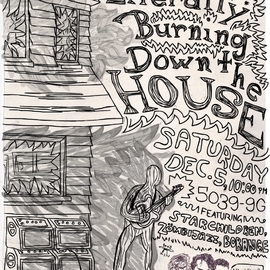 Literally:
Burning
Down the
HOUSE
SATURDAY
DEC. 5, 10:00 PM
5039-9G
FEATURING
STARCHILDREN,
ZOMBIEJAZZ, BORANGE